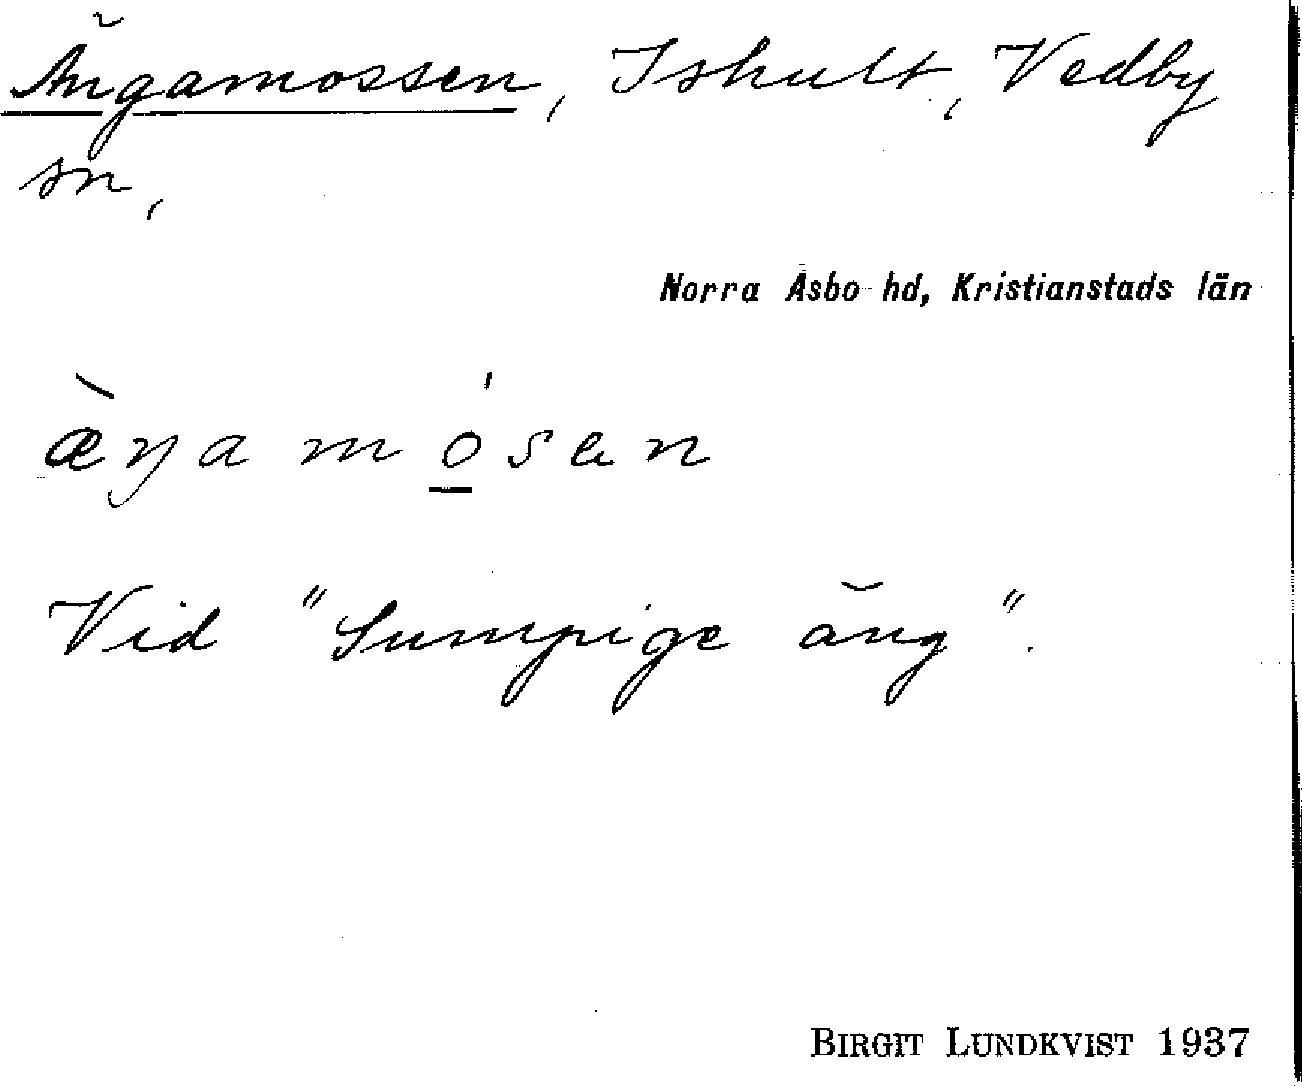 Ängamossen, Ishult, Vedby
sn,
Norra Åsbo hd, Kristianstads län
æ̀ŋamó̱sen
Vid "Sumpige äng".
BIRGIT LUNDKVIST 1937